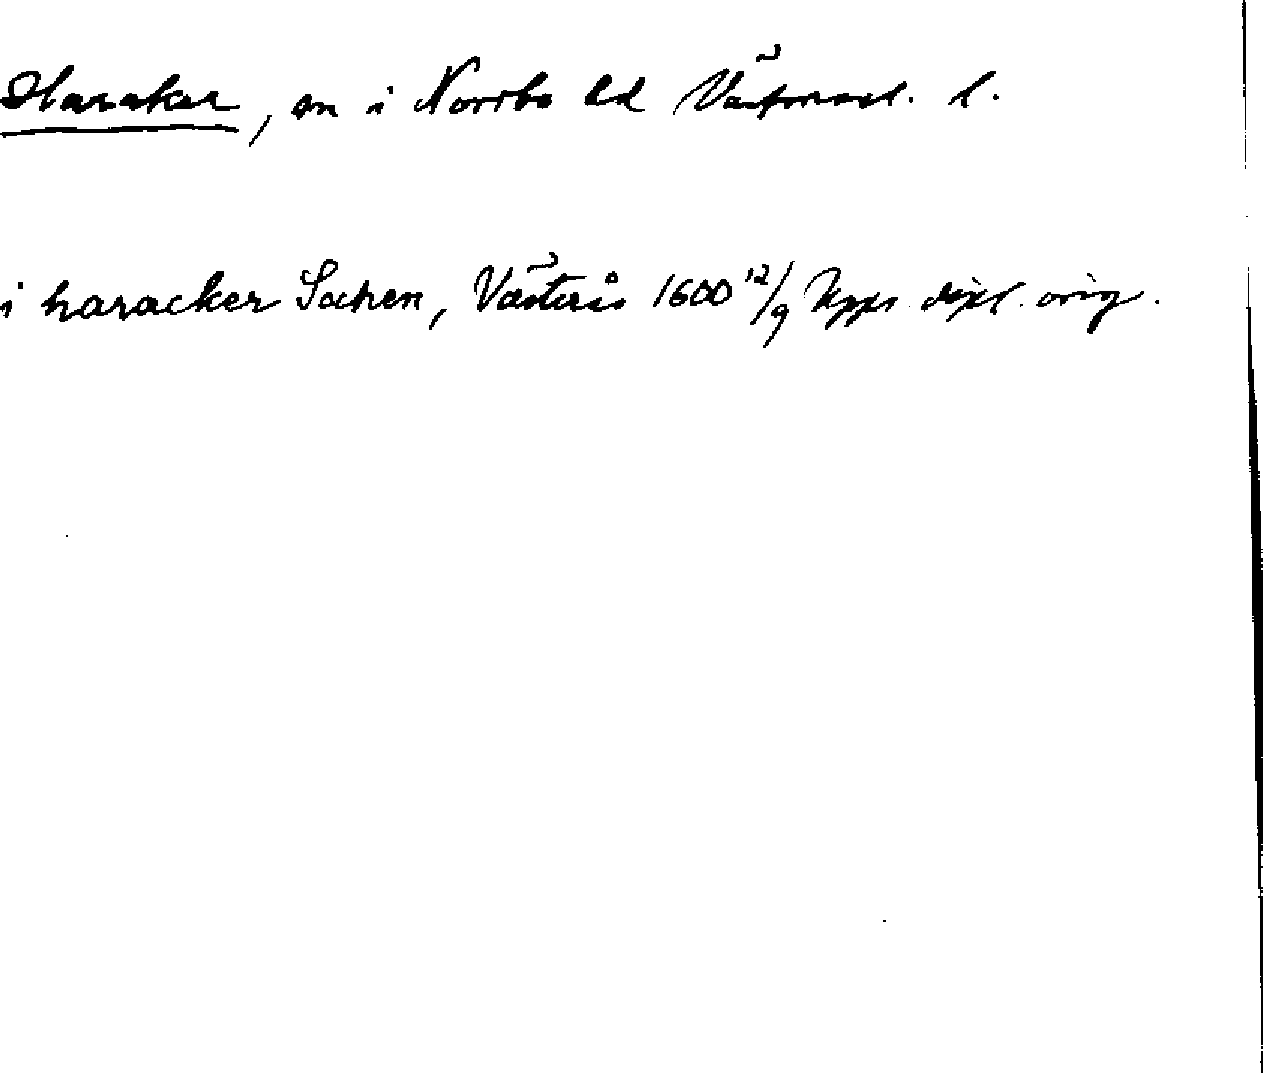 Haraker, sn i Norrbo hd Västmanl. l.
i haracker Sochen, Västerås 1600 12/9 Upps. dipl. orig.